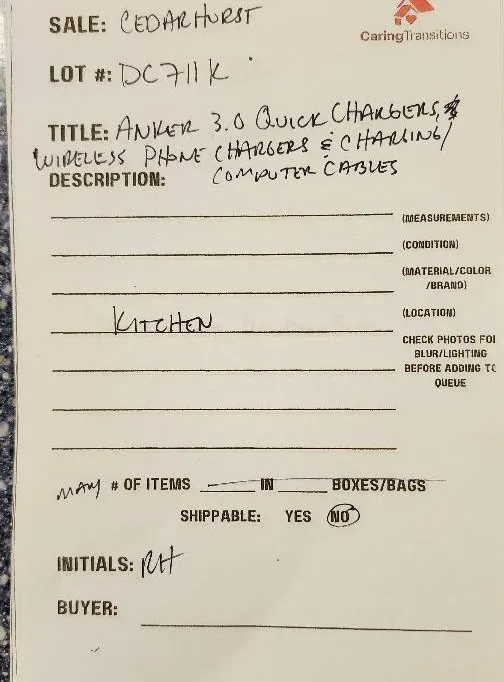 SALE: CEDARHURST
CaringTransitions
LOT #: DC711K
TITLE: ANKER 3.0 QUICK CHARGERS,
WIRELESS PHONE CHARGERS & CHARGING/
DESCRIPTION: COMPUTER CABLES
(MEASUREMENTS)
(CONDITION)
(MATERIAL/COLOR
/BRAND)
KITCHEN (LOCATION)
CHECK PHOTOS FOR
BLUR/LIGHTING
BEFORE ADDING TO
QUEUE
MANY # OF ITEMS IN BOXES/BAGS
SHIPPABLE: YES NO
INITIALS: RH
BUYER: